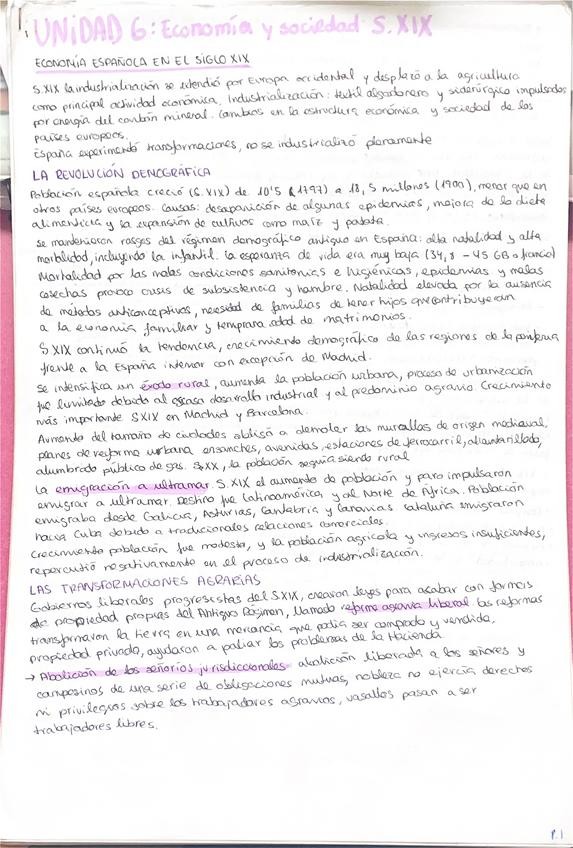 UNIDAD 6: Economía y sociedad S.XIX
ECONOMÍA ESPAÑOLA EN EL SIGLO XIX
S.XIX la industrialización se extendió por Europa occidental y desplazó a la agricultura
como principal actividad económica, Industrialización: textil algodonero y siderúrgico impulsados
por energía del carbón mineral. Cambios en la estructura económica y sociedad de los
países europeos.
España experimentó transformaciones, no se industrializó plenamente
LA REVOLUCIÓN DEMOGRÁFICA
Población española creció (S.XIX) de 10'5 (1797) a 18,5 millones (1900), menor que en
otros países europeos. Causas: desaparición de algunas epidemias, mejora de la dieta
alimenticia y la expansión de cultivos como maíz y patata.
Se mantenieron rasgos del régimen demográfico antiguo en España: alta natalidad y alta
mortalidad, incluyendo la infantil. La esperanza de vida era muy baja (34,8 - 45 GB o francia)
Mortalidad por las malas condiciones sanitarias e higiénicas, epidemias y malas
cosechas provoco crisis de subsistencia y hambre. Natalidad elevada por la ausencia
de metodos anticonceptivos, necesidad de familias de tener hijos que contribuyeran
a la economía familiar y temprana edad de matrimonios.
S XIX continuó la tendencia, crecimiento demográfico de las regiones de la periferia
frente a la España interior con excepción de Madrid.
Se intensifica un éxodo rural, aumenta la población urbana, proceso de urbanización
fue limitado debido al escaso desarrollo industrial y al predominio agrario Crecimiento
más importante SXIX en Madrid y Barcelona.
Aumento del tamaño de ciudades obligó a demoler las murallas de origen medieval,
planes de reforma urbana ensanches, avenidas, estaciones de ferrocarril, alcantarillado,
alumbrado público de gas. SXX, la población seguía siendo rural
La emigración a ultramar. S.XIX el aumento de población y paro impulsaron
emigrar a ultramar. Destino fue Latinoamérica, y al Norte de África. Población
emigraba desde Galicia, Asturias, Cantabria y Canarias Cataluña emigraron
hacia Cuba debido a tradicionales relaciones comerciales.
Crecimiento población fue modesto, y la población agrícola y ingresos insuficientes,
repercutió negativamente en el proceso de industrialización.
LAS TRANSFORMACIONES AGRARIAS
Gobiernos liberales progresistas del S.XIX, crearon leyes para acabar con formas
de propiedad propias del Antiguo Régimen, llamado reforma agraria liberal. Las reformas
transformaron la tierra en una mercancía que podía ser comprada y vendida,
propiedad privada, ayudaron a paliar los problemas de la Hacienda.
→ Abolición de los señoríos jurisdiccionales abolición liberada a los señores y
campesinos de una serie de obligaciones mutuas, nobleza no ejercía derechos
ni privilegios sobre los trabajadores agrarios, vasallos pasan a ser
trabajadores libres.
P.1